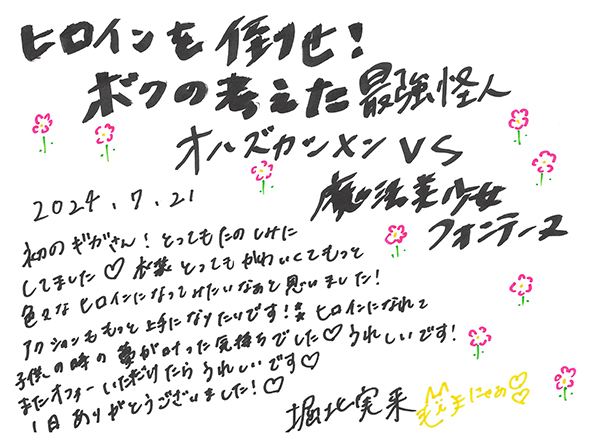 ヒロインを倒せ!
ボクの考えた最強怪人
オルズカンメンVS
魔法美少女
フォンテーヌ
2024.7.21
初のギガさん!とってもたのしみに
してました♡衣装とってもかわいくてもっと
色々なヒロインになってみたいなぁと思いました!
アクションももっと上手になりたいです!ヒロインになれて
子供の時の夢が叶った気持ちでした♡うれしいです!
またオファーいただけたらうれしいです♡
1日ありがとうございました!♡
堀北実来
にゃぁ♡